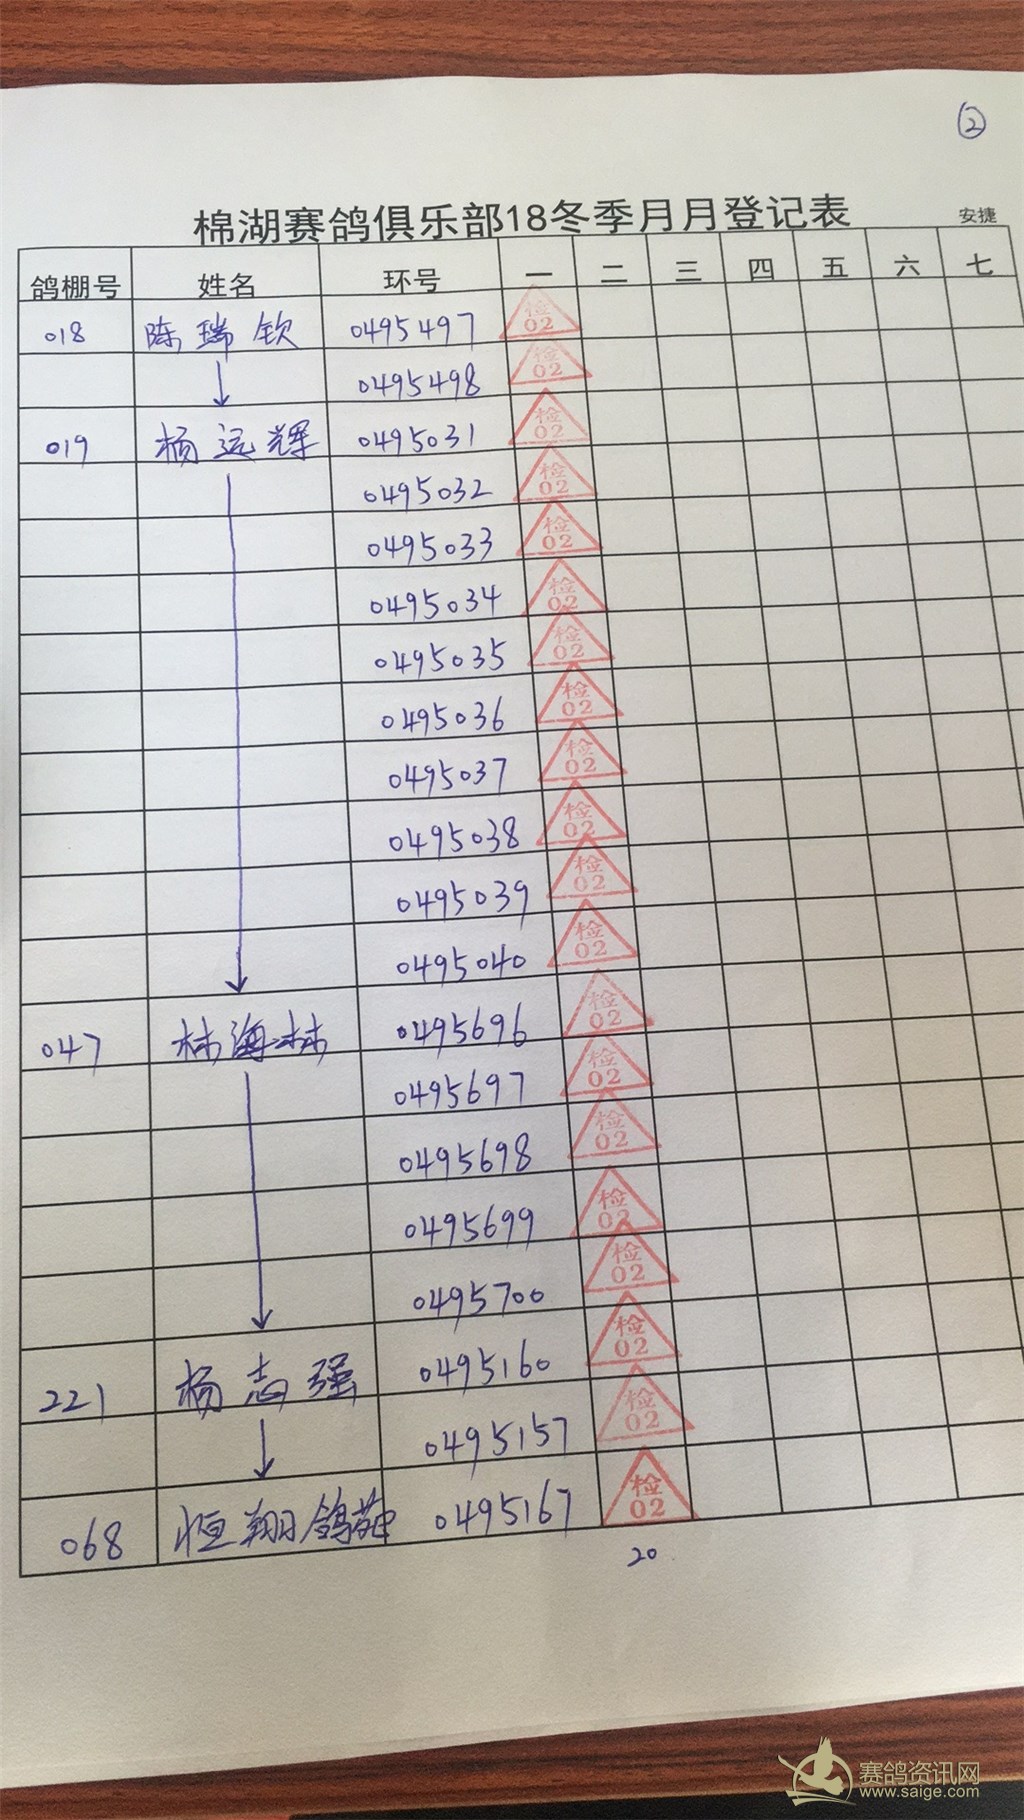 ②
棉湖赛鸽俱乐部18冬季月月登记表 安捷
鸽棚号 姓名 环号 一 二 三 四 五 六 七
018 陈瑞钦 0495497 检02
0495498 检02
019 杨远辉 0495031 检02
0495032 检02
0495033 检02
0495034 检02
0495035 检02
0495036 检02
0495037 检02
0495038 检02
0495039 检02
0495040 检02
047 林海林 0495696 检02
0495697 检02
0495698 检02
0495699 检02
0495700 检02
221 杨志强 0495160 检02
0495157 检02
068 恒翔鸽苑 0495167 检02
20
赛鸽资讯网
www.saige.com